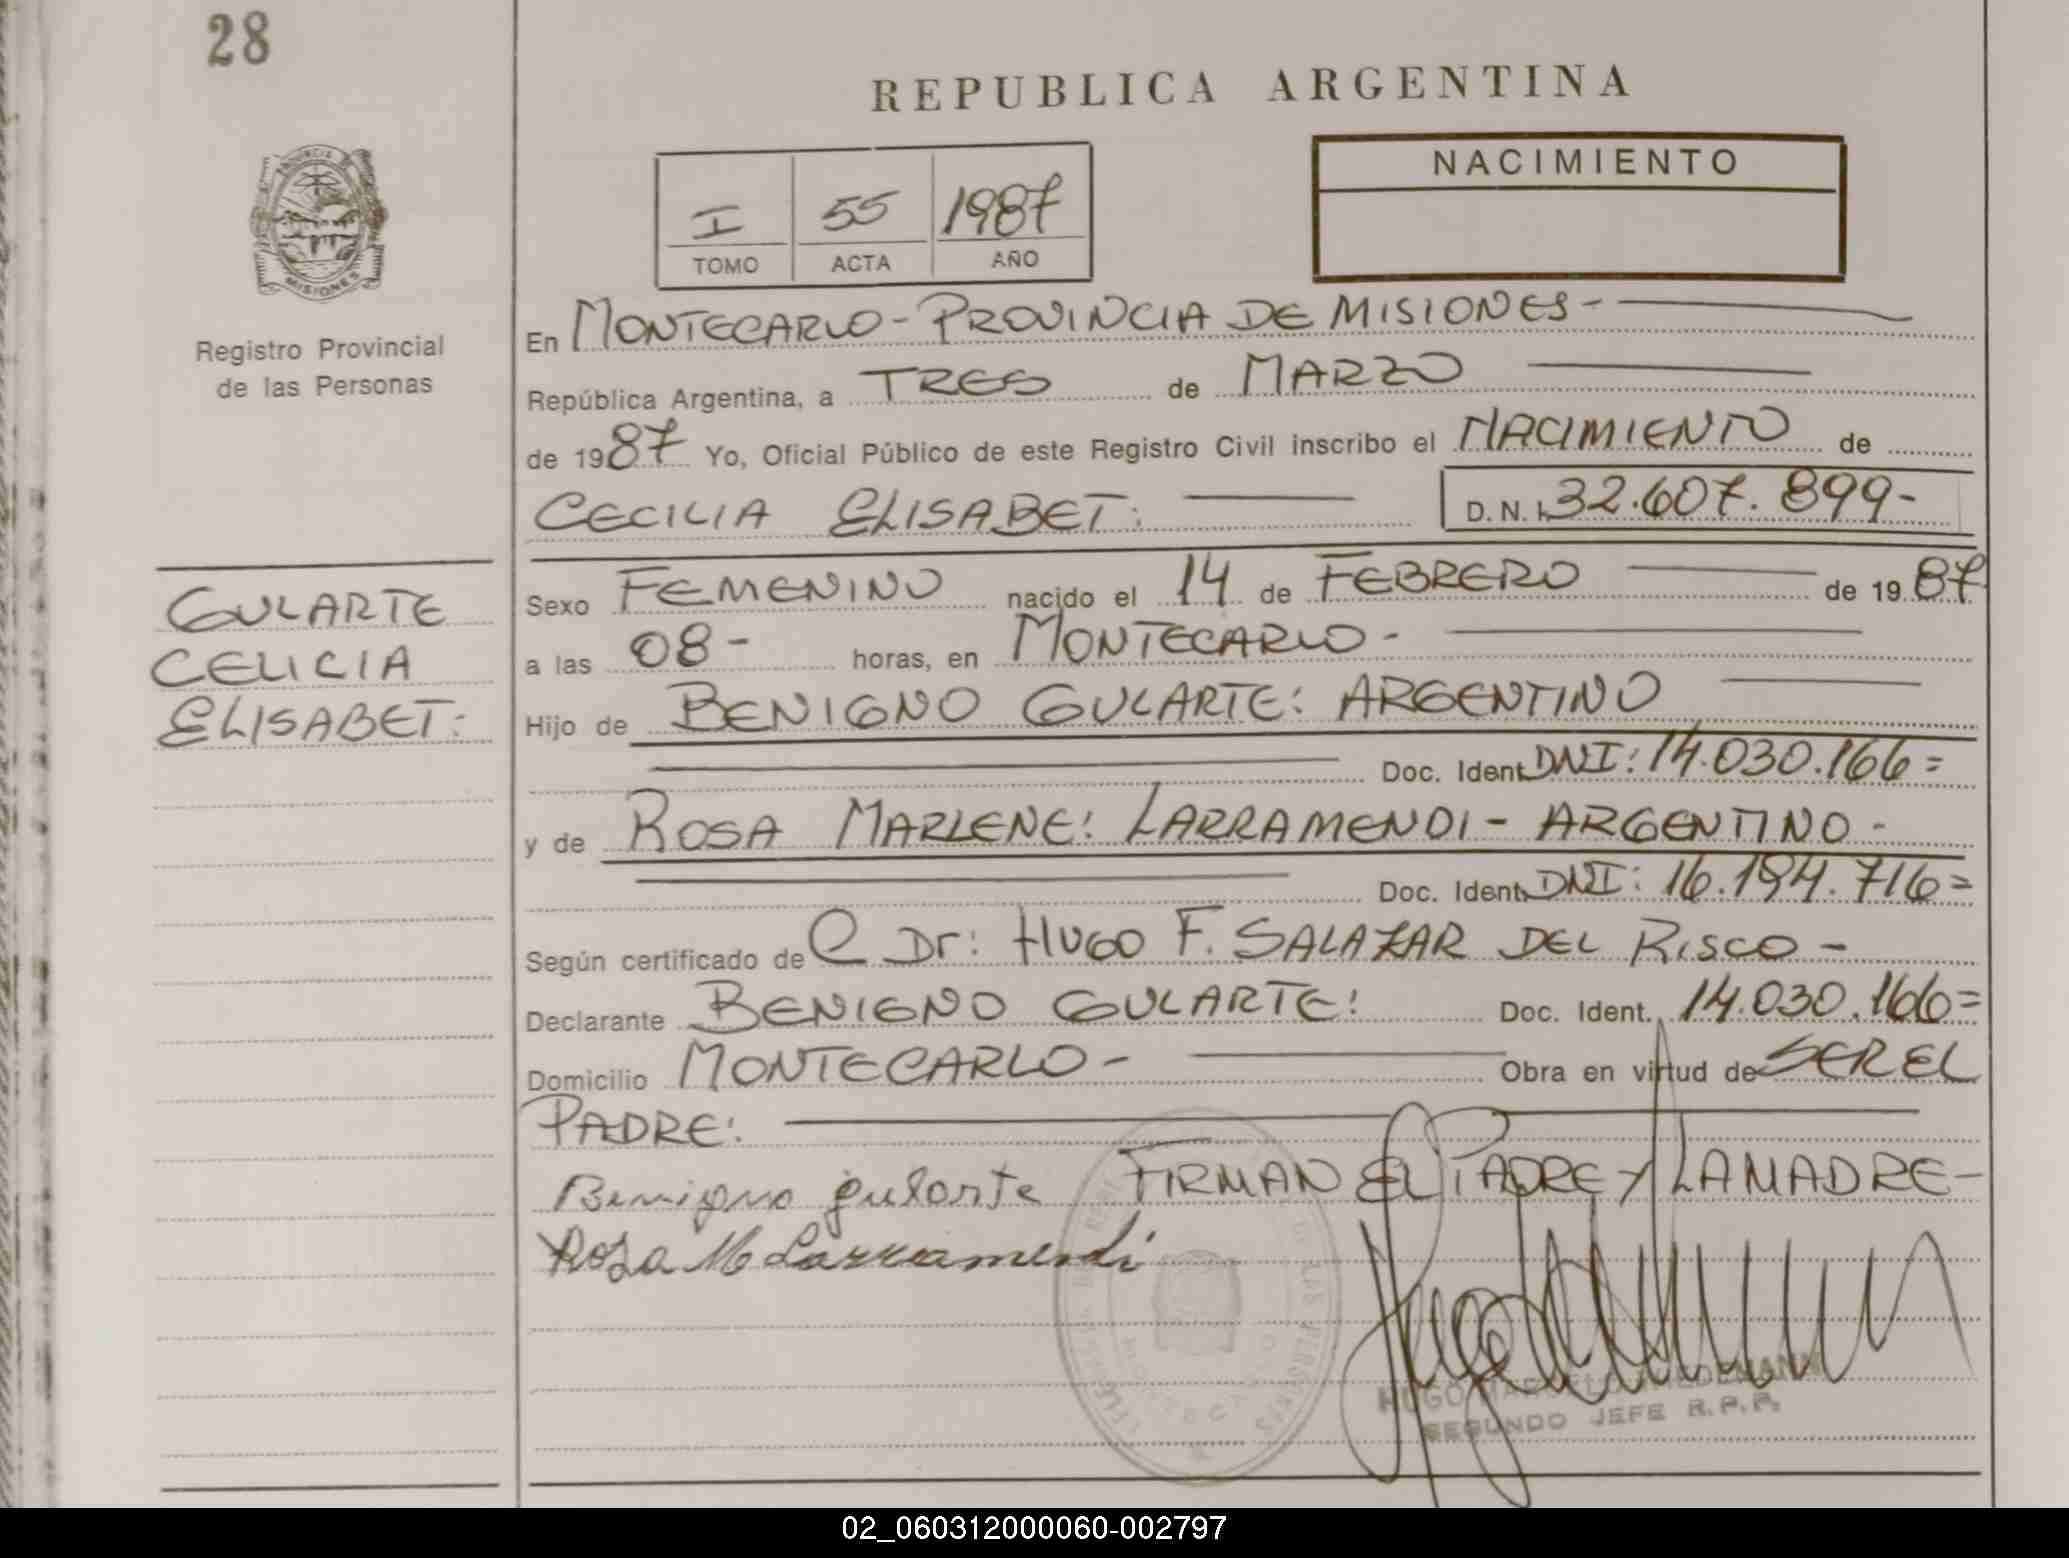 28
REPUBLICA ARGENTINA
NACIMIENTO
I 55 1987
TOMO ACTA AÑO
PROVINCIA
MISIONES
Registro Provincial
de las Personas
En MONTECARLO - PROVINCIA DE MISIONES -
República Argentina, a TRES de MARZO
de 1987 Yo, Oficial Público de este Registro Civil inscribo el NACIMIENTO de
CECILIA ELISABET: D.N.I. 32.607.899-
GULARTE
CELICIA
ELISABET:
Sexo FEMENINO nacido el 14 de FEBRERO de 1987
a las 08- horas, en MONTECARLO -
Hijo de BENIGNO GULARTE: ARGENTINO
Doc. Ident. DNI: 14.030.166=
y de ROSA MARLENE: LARRAMENDI - ARGENTINO -
Doc. Ident. DNI: 16.194.716=
Según certificado de C Dr: HUGO F. SALAZAR DEL RISCO -
Declarante BENIGNO GULARTE: Doc. Ident. 14.030.166=
Domicilio MONTECARLO - Obra en virtud de SER EL
PADRE:
Benigno gularte FIRMAN EL PADRE Y LA MADRE -
Rosa M Larramendi
HUGO MARCELO WIEDEMANN
SEGUNDO JEFE R.P.P.
02_060312000060-002797